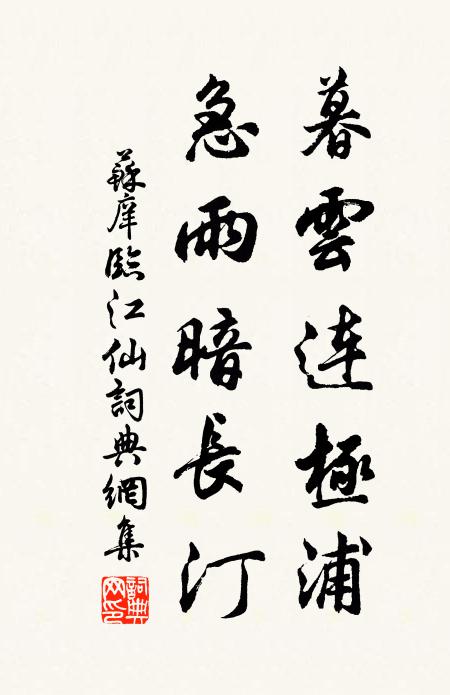 暮雲連極浦
急雨暗長汀
蘇庠臨江仙詞典網集
詞典網印